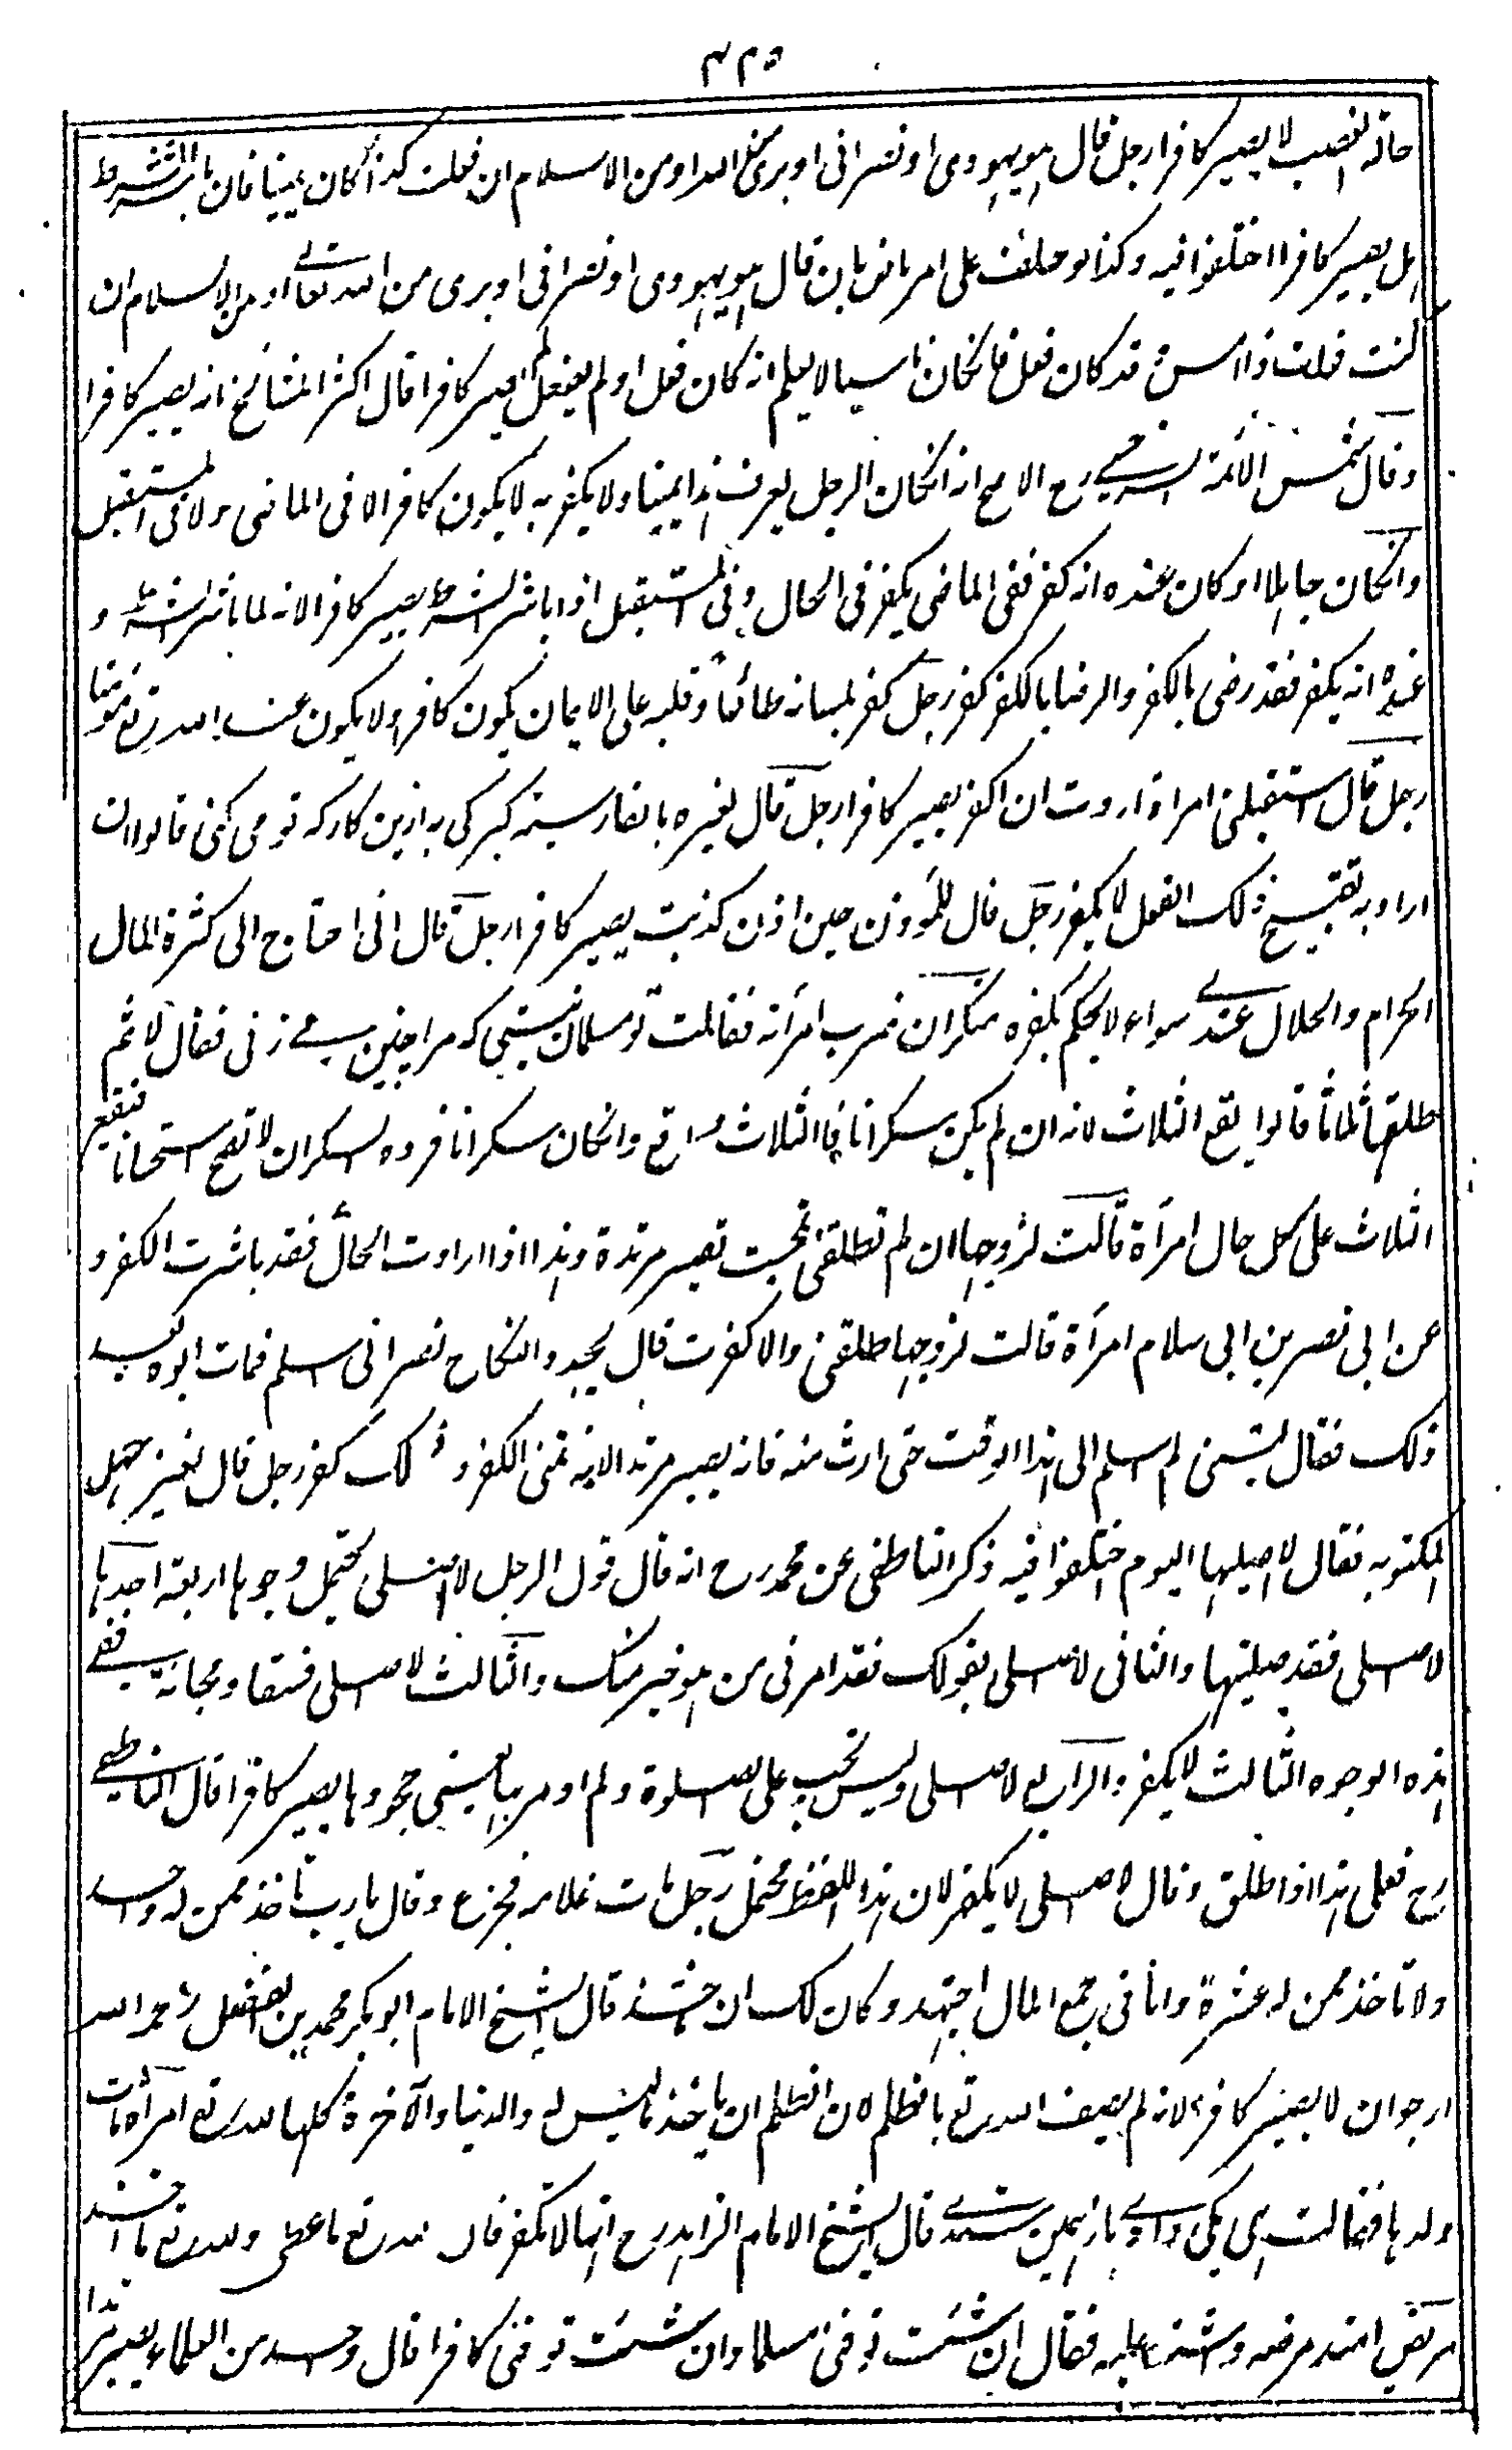 ٤٢٥
حالة الغصب لا يصير كافرا رجل قال هو يهودى او نصرانى او برئ من الله او من الاسلام ان فعلت كذا كان يمينا فان باشر الشرط
هل يصير كافرا اختلفوا فيه وكذا لو حلف على امر ماض بان قال هو يهودى او نصرانى او برى من الله تعالے او من الاسلام ان
كنت فعلت ذا امس و قد كان فعل فانكان ناسيا لا يعلم انه كان فعل او لم يفعل لم يصر كافرا قال اكثر المشائخ انه يصير كافرا
وقال شمس الائمة السرخسے رح الاصح انه انكان الرجل يعرف هذا يمينا ولا يكفر به لا يكون كافرا لا فى الماضى ولا فى المستقبل
وانكان جاهلا او كان عنده انه كفر ففى الماضى يكفر فى الحال وفى المستقبل اذا باشر الشرط يصير كافرا لانه لما باشر الشرط و
عنده انه يكفر فقد رضى بالكفر والرضا بالكفر كفر رجل كفر بلسانه طائعا وقلبه على الايمان يكون كافرا ولا يكون عند الله تع مؤمنا
رجل قال استقبلنى امر اذا ردت ان اكفر يصير كافرا رجل قال لغيره بالفارسية كبركى به ازين كار كه تو مى كنى قالوا ان
اراد به تقبيح ذلك الفعل لا يكفر رجل قال للمؤذن حين اذن كذبت يصير كافرا رجل قال انى احتاج الى كثرة المال
الحرام والحلال عندے سواء لا يحكم بكفره سكران ضرب امرأته فقالت تو مسلمان نيستى كه مرا چنين مے زنى فقال لا ثم
طلقها ثلاثا قالوا يقع الثلاث لانه ان لم يكن سكرانا فالثلاث واقع وانكان سكرانا فردة السكران لا تصح استحسانا فتقع
الثلاث على كل حال امرأة قالت لزوجها ان لم تطلقنى تصير مرتدة وهذا اذا ارادت الحال فقد باشرت الكفر و
عن ابى نصر بن ابى سلام امرأة قالت لزوجها طلقنى والا كفرت قال يجدد النكاح نصرانى اسلم فمات ابوه بعد
ذلك فقال ليتنى لم اسلم الى هذا الوقت حتى ارث منه فانه يصير مرتدا لانه تمنى الكفر و ذلك كفر رجل قال لغيره صل
المكتوبة فقال لا اصليها اليوم اختلفوا فيه ذكر الناطفى عن محمد رح انه قال قول الرجل لا اصلى يحتمل وجوها اربعة احدها
لا اصلى فقد صليتها والثانى لا اصلى بقولك فقد امرنى من هو خير منك والثالث لا اصلى فسقا ومجانة ففے
هذه الوجوه الثالث لا يكفر والرابع لا اصلى وليس تجب على الصلوة ولم اومر بها يعنى جحودها يصير كافرا قال الناطفے
رح فعلى هذا اذا اطلق وقال لا اصلى لا يكفر لان هذا اللفظ محتمل رجل مات غلامه فجزع وقال يا رب تأخذ ممن له واحد
ولا تاخذ ممن له عشرة وانا فى جمع المال اجتهد وكان لك ان قال الشيخ الامام ابو بكر محمد بن الفضل رحمه الله
ارجو ان لا يصير كافرا لانه لم يصف الله تع بالظلم لان الظلم ان ياخذ ما ليس له والدنيا والآخرة كلها لله تع امرأة مات
ولدها فقالت اى يكى دادے باز همين ستدے قال الشيخ الامام الزاهد رح انها لا تكفر فان لله تع ما اعطى ولله تع ما اخذ
مريض امتد مرضه واشتد عليه فقال ان شئت توفنى مسلما وان شئت توفنى كافرا قال واحد من العلماء يصير مرتدا